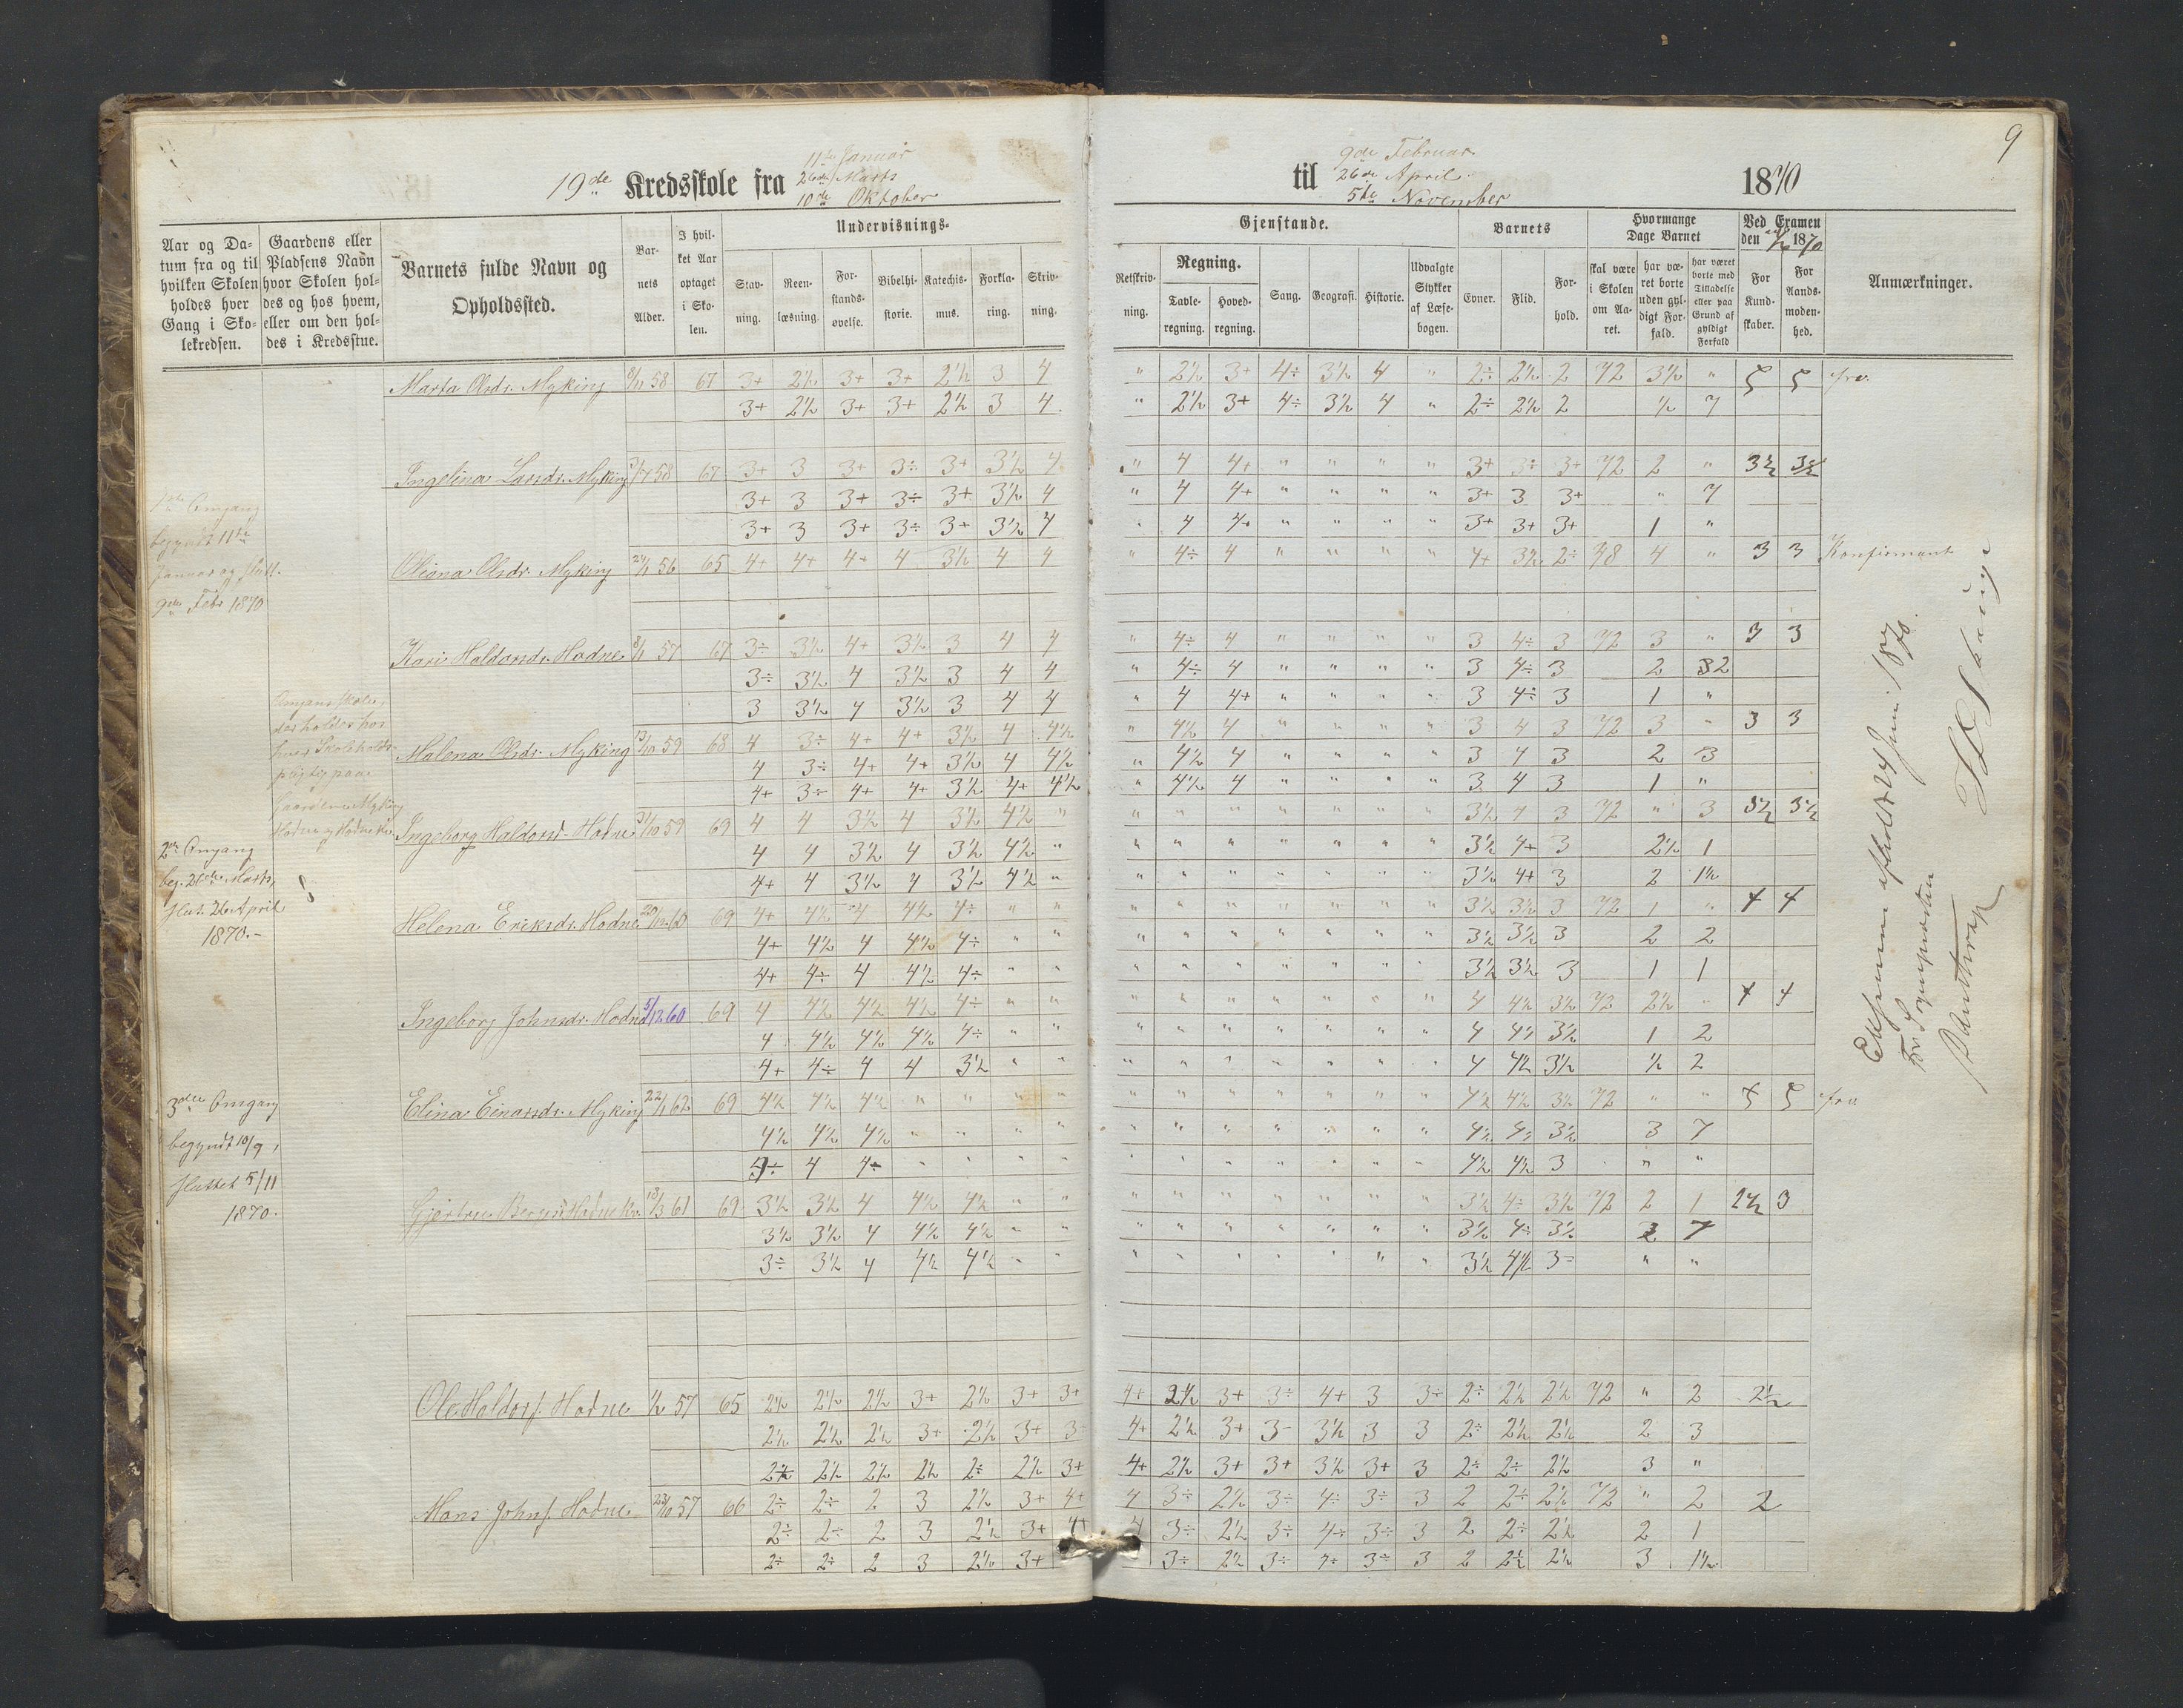 9
11te Januar
26de Marts
10de Oktober
19de Kredsskole fra
9de Februar
26de April
5te November
til
1870
Aar og Datum fra og til hvilken Skolen holdes hver Gang i Skolekredsen.
Gaardens eller Pladsens Navn hvor Skolen holdes og hos hvem, eller om den holdes i Kredsstue.
Barnets fulde Navn og Opholdssted.
Barnets Alder.
I hvilket Aar optaget i Skolen.
Undervisnings-
Stavning.
Reenlæsning.
Forstandsøvelse.
Bibelhistorie.
Katechismus.
Forklaring.
Skrivning.
Gjenstande.
Retskrivning.
Regning.
Tavleregning.
Hovedregning.
Sang.
Geografi.
Historie.
Udvalgte Stykker af Læsebogen.
Barnets
Evner.
Flid.
Forhold.
Hvormange Dage Barnet
skal være i Skolen om Aaret.
har været borte uden gyldigt Forfald.
har været borte med Tilladelse eller paa Grund af gyldigt Forfald
Ved Examen den 1870
For Kundskaber.
For Aandsmodenhed.
Anmærkninger.
Marta Olsdr. Myking 8/11 58 67 3+ 2½ 3+ 3+ 2½ 3 4 " 2½ 3+ 4÷ 3½ 4 " 2÷ 2½ 2 72 3½ " 5 5 frv.
3+ 2½ 3+ 3+ 2½ 3 4 " 2½ 3+ 4÷ 3½ 4 " 2÷ 2½ 2 ½ 7
Ingelina Larsdr. Myking 3/7 58 67 3+ 3 3+ 3÷ 3+ 3½ 4 " 4 4+ " " " " 3+ 3÷ 3+ 72 2 " 3½ 3½
3+ 3 3+ 3÷ 3+ 3½ 4 " 4 4+ " " " " 3+ 3 3+ " 7
3+ 3 3+ 3÷ 3+ 3½ 4 " 4 4+ " " " " 3+ 3+ 3+ 1 "
Oliana Olsdr. Myking 24/1 56 65 4+ 4+ 4+ 4 3½ 4 4 " 4÷ 4 " " " " 4+ 3½ 2÷ 48 4 " 3 3 Konfirmant
Kari Haldorsdr. Hodne 8/1 57 67 3÷ 3½ 4+ 3½ 3 4 4 " 4÷ 4 " " " " 3 4÷ 3 72 3 " 3 3
3÷ 3½ 4 3½ 3 4 4 " 4÷ 4 " " " " 3 4÷ 3 2 32
3 3½ 4 3½ 3 4 4 " 4 4+ " " " " 3 4÷ 3 1 "
Malena Olsdr. Myking 13/10 59 68 4 3÷ 4+ 4+ 3½ 4 4½ " 4½ 4 " " " " 3 4 3 72 3 " 3 3
4 3÷ 4+ 4+ 3½ 4 4½ " 4½ 4 " " " " 3 4 3 2 3
4+ 3÷ 4+ 4+ 3½ 4+ 4½ " 4½ 4 " " " " 3 4 3 1 "
Ingeborg Haldorsd. Hodne 31/10 59 69 4 4 3½ 4 3½ 4½ " " " " " " " " " 3½ 4 3 72 " 3 3½ 3½
4 4 3½ 4 3½ 4½ " " " " " " " " 3½ 4+ 3 2½ 1
4+ 4 3½ 4 3½ 4½ " " " " " " " " 3½ 4+ 3 2 1½
Helena Eriksdr. Hodne 20/12 60 69 4+ 4½ 4 4½ 4÷ " " " " " " " " " 3½ 3½ 3 72 1 " 4 4
4+ 4½ 4 4½ 4÷ " " " " " " " " " 3½ 3½ 3 2 2
4+ 4÷ 4 4½ 4÷ " " " " " " " " " 3½ 3½ 3 1 1
Ingeborg Johnsdr. Hodne 5/12 60 69 4 4½ 4½ 4½ 4÷ " " " " " " " " " 4 4½ 3½ 72 2½ " 4 4
4 4½ 4½ 4½ 4÷ " " " " " " " " " 4 4½ 3½ 1 2
4+ 4÷ 4 4 3½ " " " " " " " " " 4 4½ 3½ ½ 2
Elina Einarsdr. Myking 22/1 62 69 4½ 4½ 4½ " " " " " " " " " " " 4½ 4½ 3½ 72 " " 5 5 frv.
4½ 4½ 4½ " " " " " " " " " " " 4½ 4½ 3½ 3 7
4÷ 4 4÷ " " " " " " " " " " " 4½ 4½ 3 " "
18/3 61 69 3½ 3½ 4 4½ 4½ " " " " " " " " " 3½ 4÷ 3½ 72 2 1 2½ 3
3½ 3½ 4 4½ 4½ " " " " " " " " " 3½ 4÷ 3½ 2 7
3÷ 3½ 4 4½ 4½ " " " " " " " " " 3½ 4½ 3÷ " "
Ole Haldors. Hodne ½ 57 65 2½ 2½ 2½ 3+ 2½ 3+ 3+ 4+ 2½ 3+ 3÷ 4+ 3 3÷ 2÷ 2½ 2½ 72 " 2 2½
2½ 2½ 2½ 3+ 2½ 3+ 3 4+ 2½ 3+ 3÷ 3½ 3 3 2÷ 2½ 2½ 2 3
2½ 2½ 2½ 2½ 2÷ 2½ 3+ 4+ 2½ 3+ 3+ 3½ 3+ 3 2÷ 2÷ 2½ 3 "
Mons Johns. Hodne 23/10 57 66 2÷ 2÷ 2 3 2½ 3+ 4+ 4 3÷ 2½ 3÷ 4÷ 3÷ 3 2 2÷ 2½ 72 " 2 2
2÷ 2÷ 2 3 2½ 3+ 4+ 4 3÷ 2½ 3÷ 4÷ 3÷ 3 2 2÷ 2½ 2 1
2÷ 2÷ 2 3 2½ 3+ 3÷ 2½ 3÷ 4÷ 3÷ 3 2 2½ 2½ 3 1½
1ste Omgang
begyndt 11te
Januar og slutt.
9de Febr 1870
Omgangsskole,
der holdes hos
hver Skoleholds-
pligtig paa
Gaardene Myking
2den Omgang
beg. 26de Marts,
slut. 26 April
1870.-
3die Omgang
begyndt 10/9,
sluttet 5/11
1870.
Eksamen afholdt 24 Juni 1870.
For Sognepresten